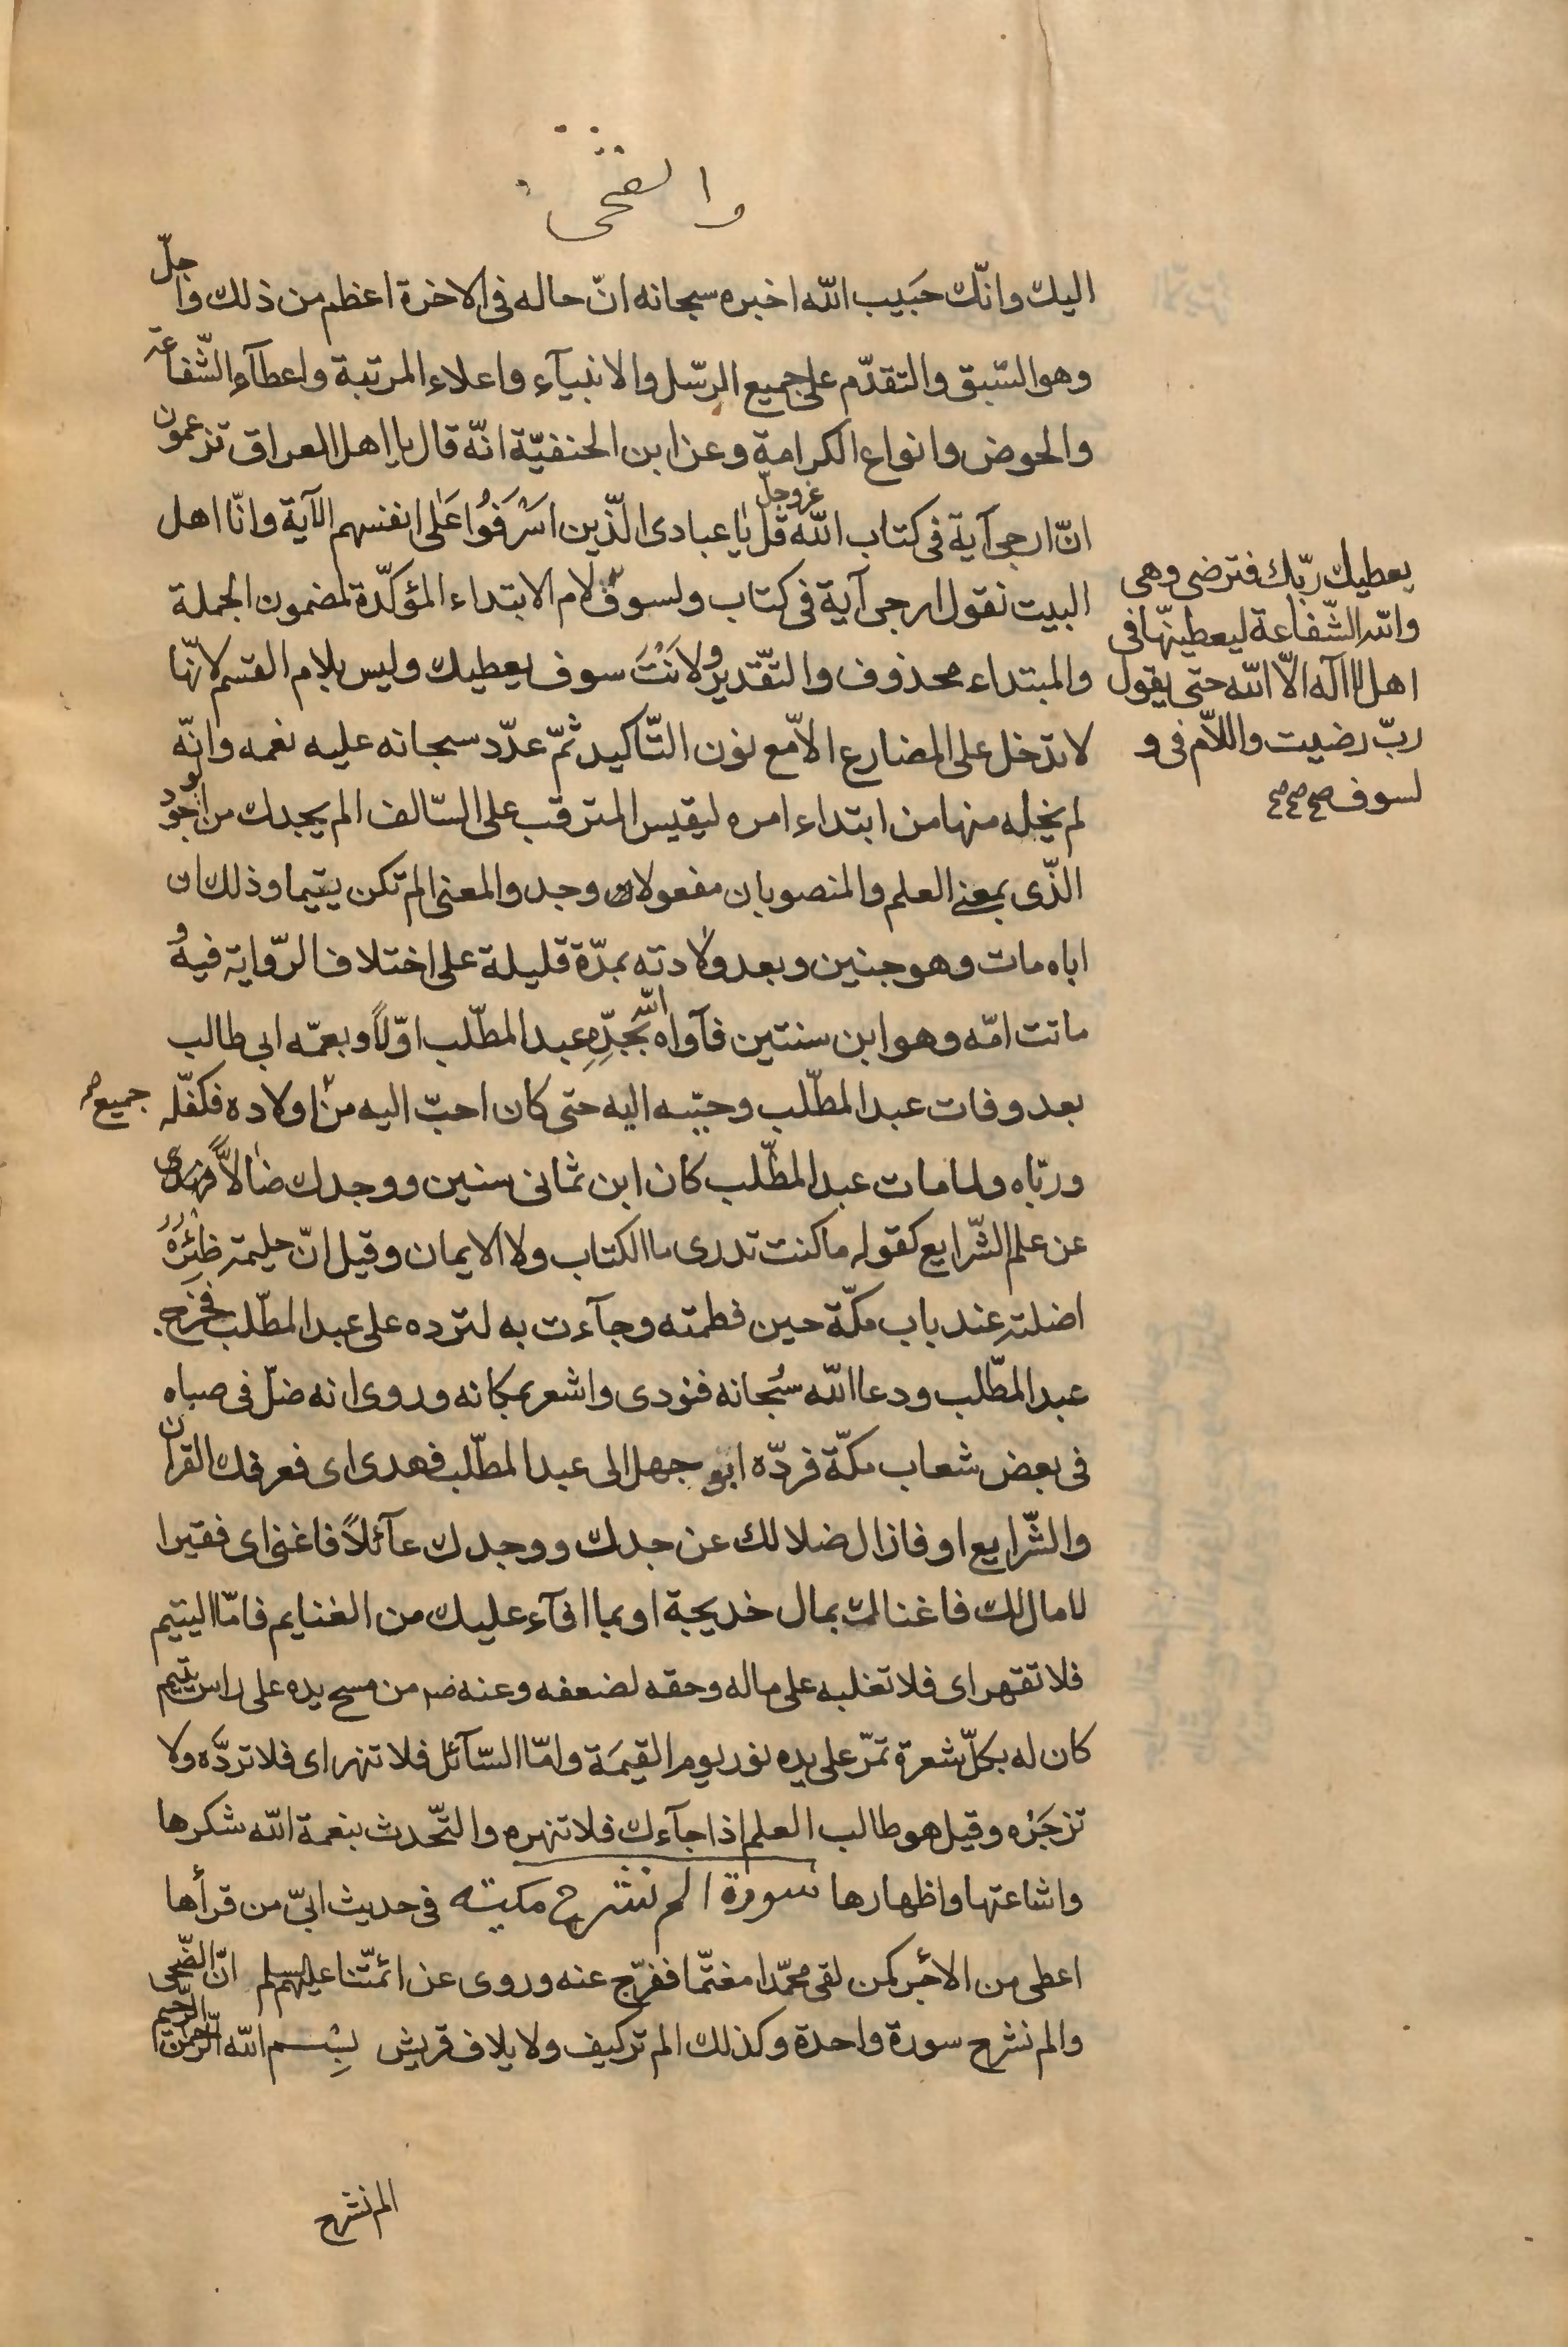 والضحى
اليك وانّك حَبيب الله اخبره سبحانه انّ حاله فى الاخرة اعظم من ذلك واجلّ
وهو السّبق والتقدّم على جميع الرسّل والانبيآء واعلاء المرتبة واعطآء الشّفاعة
والحوض وانواع الكرامة وعن ابن الحنفيّة انّه قال يا اهل العراق تزعمون
انّ ارجى آية فى كتاب الله عزوجلّ قل يا عبادى الّذين اسْرَفُوا عَلى انفسهم الآية وانّا اهل
البيت نقول ارجى آية فى كتاب ولسوف لام الابتداء المؤكّدة لمضمون الجملة
والمبتداء محذوف والتّقدير ولانْتَ سوف يعطيك وليس بلام القسم لانّها
لا تدخل على المضارع الاّ مع نون التّاكيد ثمّ عدّد سبحانه عليه نعمه وانّه
لم يخله منها من ابتداء امره ليقيس المترقب على السّالف الم يجدك من الوجود
الذّى بمعنى العلم والمنصوبان مفعولا وجد والمعنى الم تكن يتيما وذلك ان
اباه مات وهو جنين وبعد ولادته بمدّة قليلة على اختلاف الرّواية فيه و
ماتت امّه وهو ابن سنتين فآواه الله بجدِّهِ عبد المطّلب اوّلاً وبعمّه ابى طالب
بعد وفات عبد المطّلب وحبّبه اليه حتى كان احبّ اليه من اولاده فكفّله
جميع
وربّاه ولما مات عبد المطّلب كان ابن ثمانى سنين ووجدك ضالاًّ فهدى
عن علم الشّرايع كقوله ما كنت تدرى ما الكتاب ولا الايمان وقيل انّ حليمة ظئره
اضلته عند باب مكّة حين فطمته وجآءت به لترده على عبد المطّلب فخرج
عبد المطّلب ودعا الله سُبحانه فنودى واشعر بمكانه وروى انه ضلّ فى صباه
فى بعض شعاب مكّة فردّه ابو جهل الى عبد المطّلب فهدى اى فعرفك القرآن
والشّرايع او فازال ضلالك عن جدك ووجدك عآئلاً فاغنى اى فقيرا
لا مال لك فاغناك بمال خديجة او بما افآء عليك من الغنايم فامّا اليتيم
فلا تقهر اى فلا تغلبه على ماله وحقه لضعفه وعنه ص من مسح يده على راس يتيم
كان له بكلّ شعرة تمرّ على يده نور يوم القيمَة وامّا السّآئل فلا تنهر اى فلا تردّه ولا
تزجَرْه وقيل هو طالب العلم اذا جآءك فلا تنهره والتّحدث بنعمة الله شكرها
واشاعتها واظهارها سورة الم نشرح مكيّة فى حديث ابىّ من قرأها
اعطى من الأجر كمن لقى محمّدا مغتمّا ففرّج عنه وروى عن ائمّتنا عليهم السلم انّ الضّحى
والم نشرح سورة واحدة وكذلك الم تر كيف ولايلاف قريش بِسْم الله الرّحمن الرّحيم
يعطيك ربّك فترضى وهى
والله الشّفاعة ليعطينّها فى
اهل لا اله الاّ الله حتى يقول
ربّ رضيت واللاّم فى و
لسوف صح صح صح
الم نشرح